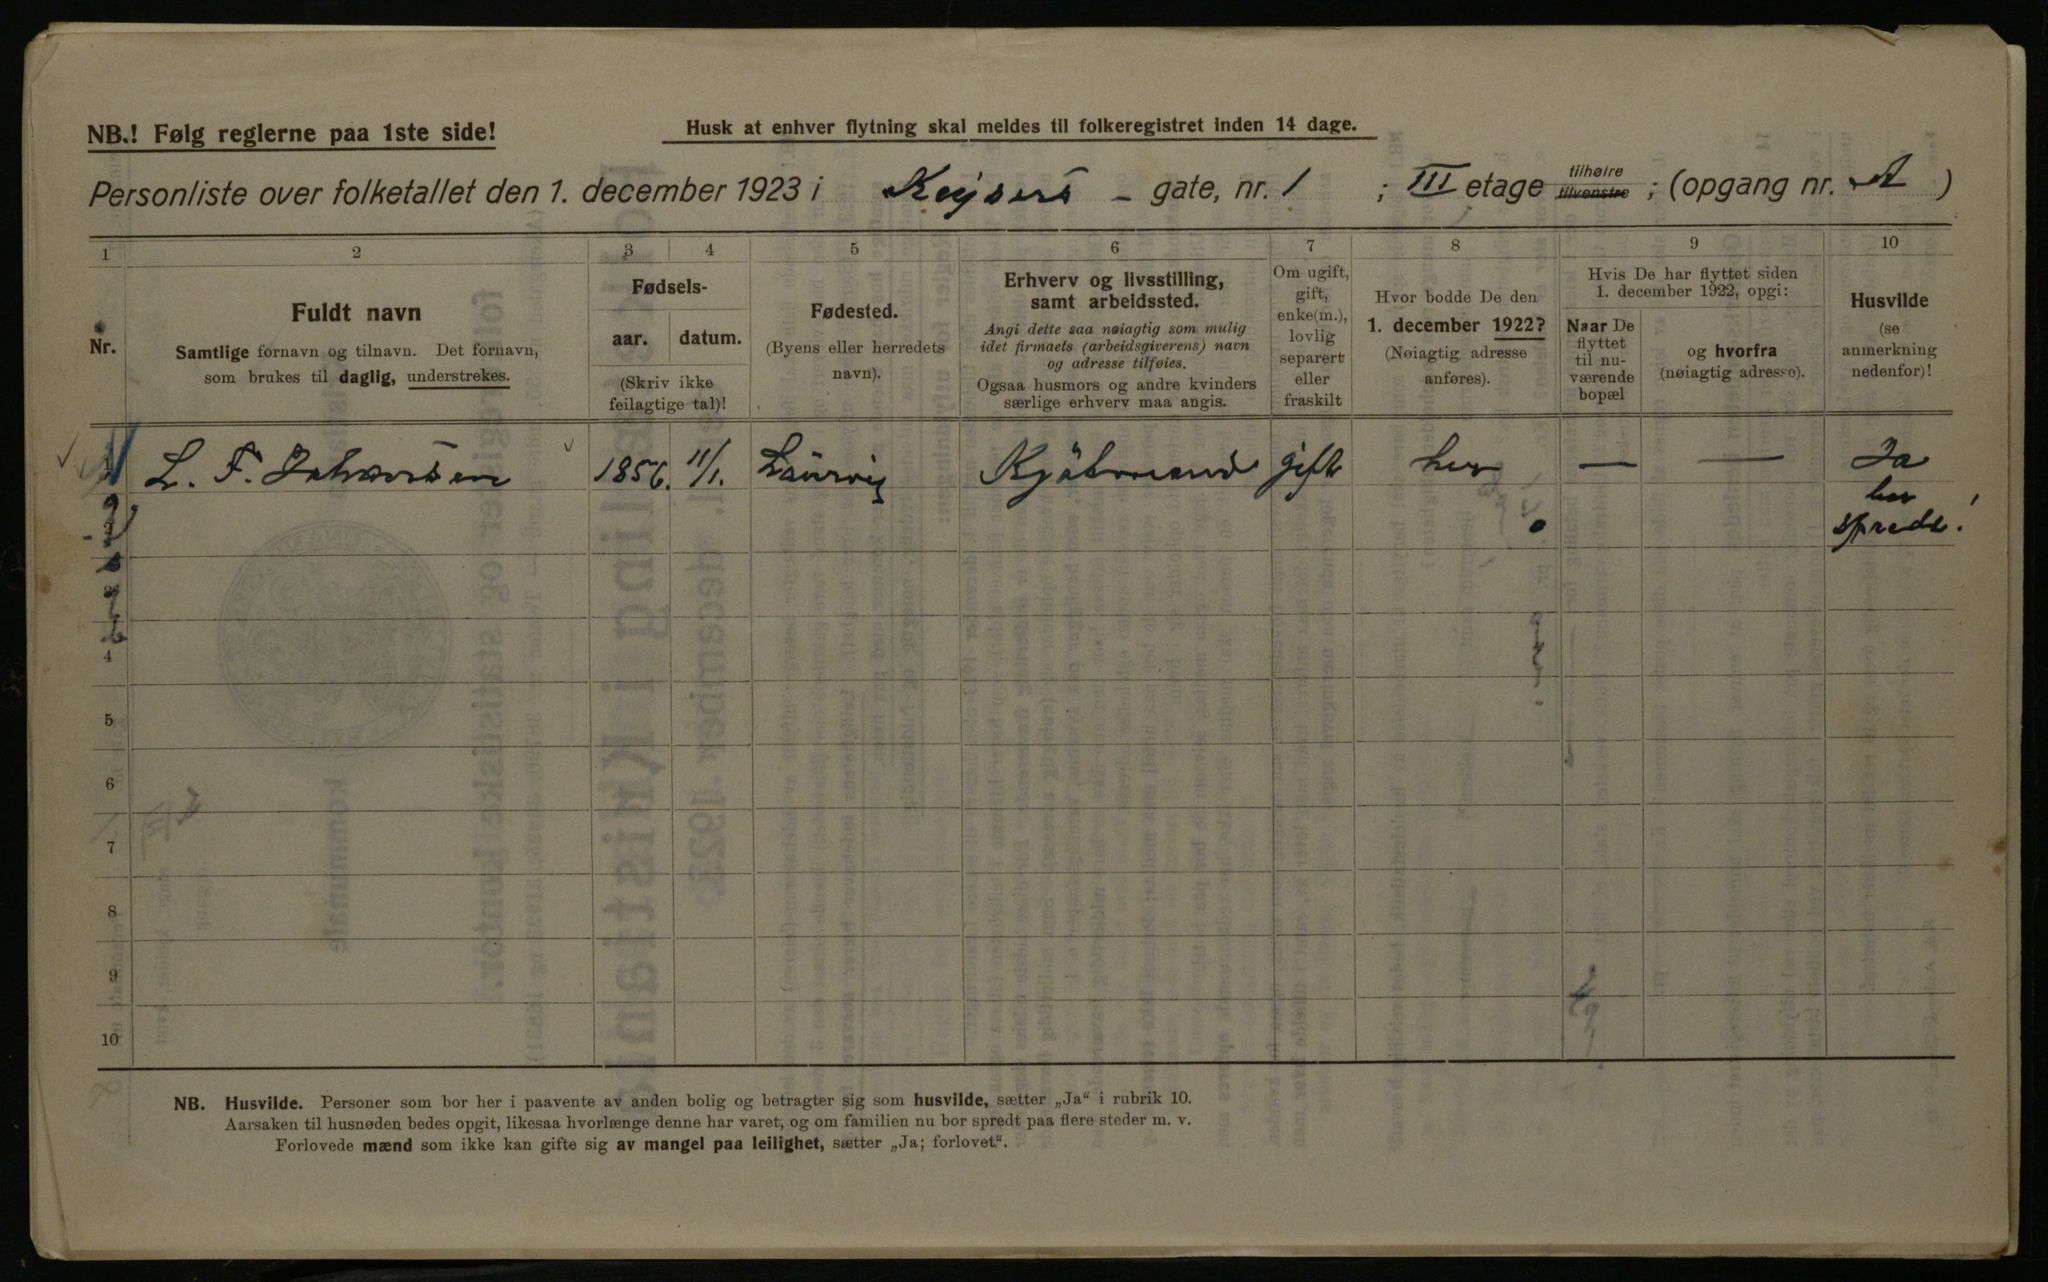 NB.! Følg reglerne paa 1ste side!
Husk at enhver flytning skal meldes til folkeregistret inden 14 dage.
Personliste over folketallet den 1. december 1923 i Keysers - gate, nr. 1 ; III etage tilhøire tilvenstre ; (opgang nr. A )
1 2 3 4 5 6 7 8 9 10
Nr.
Fuldt navn
Samtlige fornavn og tilnavn. Det fornavn,
som brukes til daglig, understrekes.
Fødsels-
aar. datum.
(Skriv ikke
feilagtige tal)!
Fødested.
(Byens eller herredets
navn).
Erhverv og livsstilling,
samt arbeidssted.
Angi dette saa nøiagtig som mulig
idet firmaets (arbeidsgiverens) navn
og adresse tilføies.
Ogsaa husmors og andre kvinders
særlige erhverv maa angis.
Om ugift,
gift,
enke(m.),
lovlig
separert
eller
fraskilt
Hvor bodde De den
1. december 1922?
(Nøiagtig adresse
anføres).
Hvis De har flyttet siden
1. december 1922, opgi:
Naar De
flyttet
til nu-
værende
bopæl
og hvorfra
(nøiagtig adresse).
Husvilde
(se
anmerkning
nedenfor)!
1 L. F. 1856. 11/1. Laurvig Kjøbmand gift her — — Ja
bor
spredt!
2
3
4
5
6
7
8
9
10
NB. Husvilde. Personer som bor her i paavente av anden bolig og betragter sig som husvilde, sætter „Ja“ i rubrik 10.
Aarsaken til husnøden bedes opgit, likesaa hvorlænge denne har varet, og om familien nu bor spredt paa flere steder m. v.
Forlovede mænd som ikke kan gifte sig av mangel paa leilighet, sætter „Ja; forlovet“.